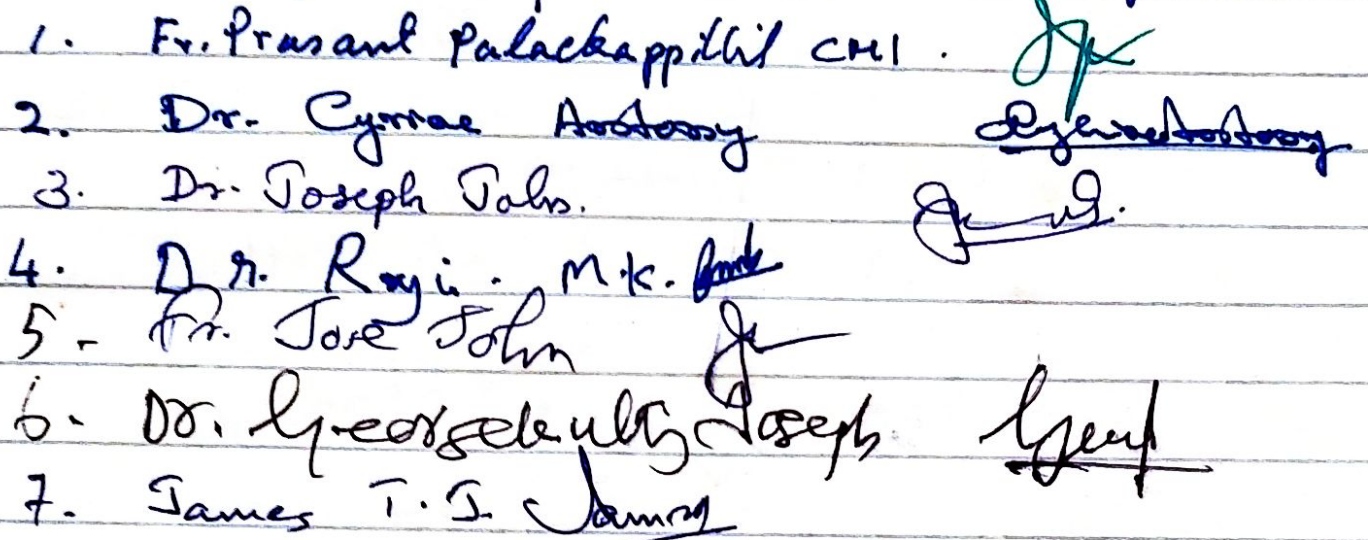 1. Fr. Prasant Palackappillil CMI.
2. Dr. Cyriac Antony
3. Dr. Joseph John.
4. Dr. Rayi. M.K.
5- Fr. Jose John
6- Dr. Georgekutty Joseph
7- James T.J. James